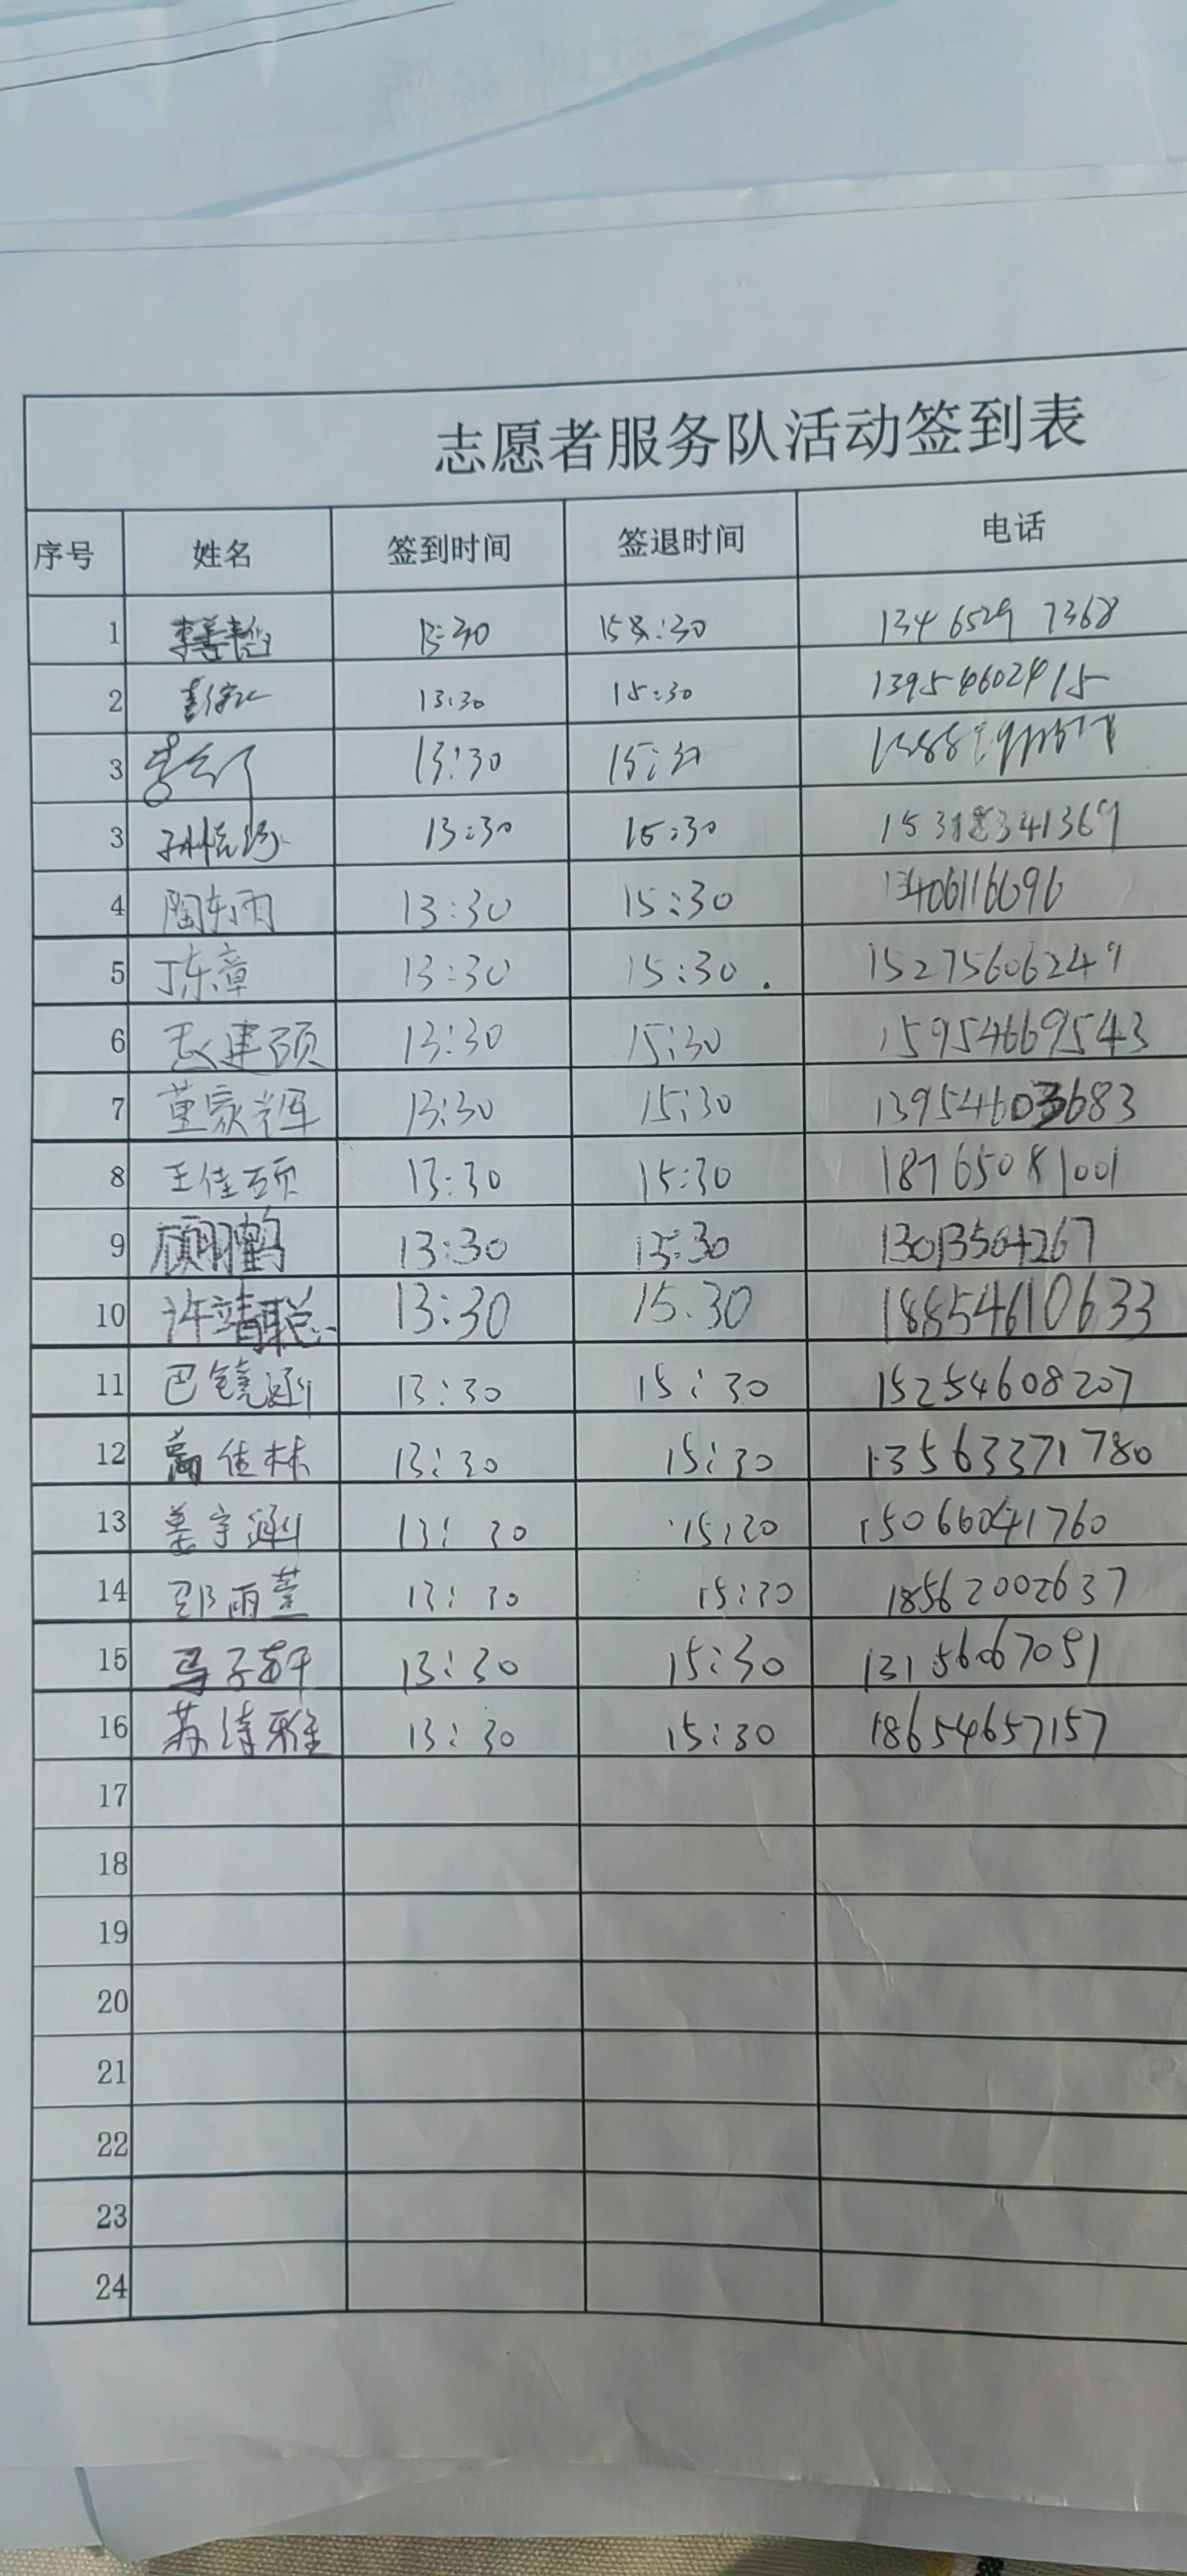 志愿者服务队活动签到表
序号 姓名 签到时间 签退时间 电话
1 13:30 15:30 13465297368
2 13:30 15:30 13954602415
3 13:30 15:30
3 13:30 15:30 15318341369
4 陶东雨 13:30 15:30 13406116696
5 丁东章 13:30 15:30. 15275606249
6 13:30 15:30 15954669543
7 董家辉 13:30 15:30 13954603683
8 王佳硕 13:30 15:30 18765081001
9 顾明鹤 13:30 15:30 13013564267
10 许靖聪 13:30 15.30 18854610633
11 巴镜涵 13:30 15:30 15254608207
12 佳林 13:30 15:30 13563371780
13 宇涵 13:30 15:30 15066041760
14 邵雨萱 13:30 15:30 18562002637
15 马子轩 13:30 15:30 13156067051
16 苏诗雅 13:30 15:30 18654657157
17
18
19
20
21
22
23
24